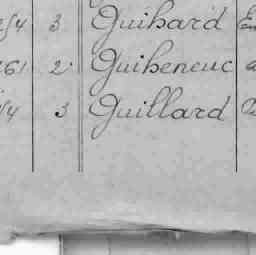 254 3 Guihard
261 2 Guiheneuc
3 Guillard